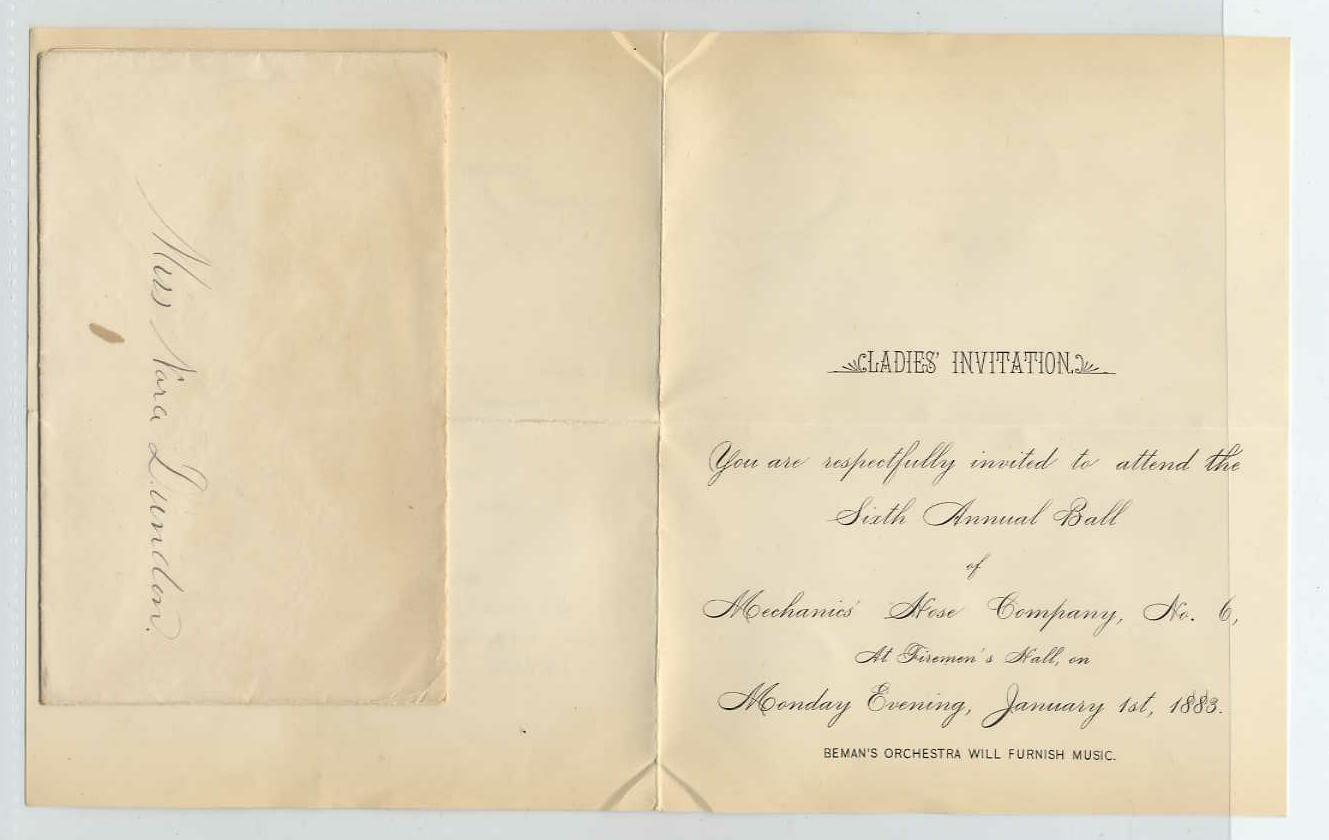 Miss Nora Lundon.
LADIES' INVITATION.
You are respectfully invited to attend the
Sixth Annual Ball
of
Mechanics' Hose Company, No. 6,
At Firemen's Hall, on
Monday Evening, January 1st, 1883.
BEMAN'S ORCHESTRA WILL FURNISH MUSIC.